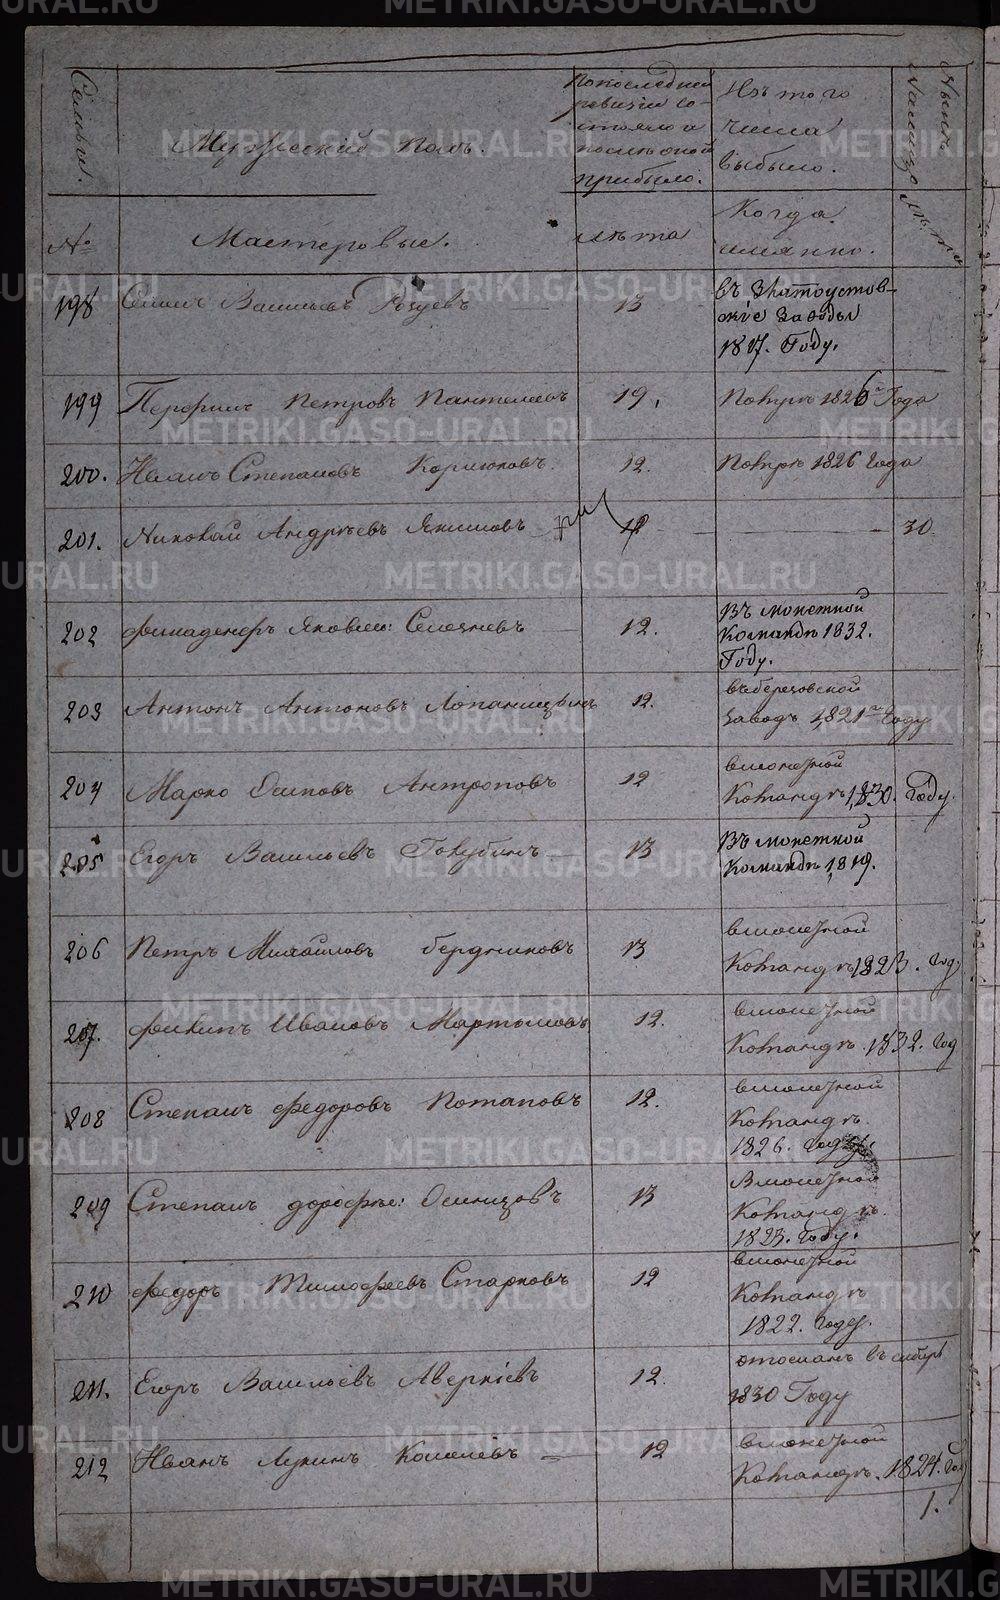 Семьи.
Мужеский полъ.
По последней
ревизіи со-
стояло и
после оной
прибыло.
Изъ того
числа
выбыло.
Ныне
налицо
№
Мастеровые.
лѣта
Когда
имянно.
лѣта
198 Семенъ Васильевъ 13 въ Златоустов-
скіе Заводы
1817. Году.
199 Перфилъ Петровъ Пантелеевъ 19. Помръ 1826го Года
200. Иванъ Степановъ Корюковъ 12. Помръ 1826 Года
201. Николай Андреевъ Якимовъ 30.
202 Филаделфъ Яковле: Селезневъ 12. Въ монетной
Командѣ 1832.
Году.
203 Антонъ Антоновъ Лопаницынъ 12. въ березовской
Заводъ 1821го Году
204 Марко Осиповъ Антроповъ 12 в монетной
Командѣ 1830. Году.
205 Егоръ Васильевъ Голубинъ 13 Въ монетной
Командѣ 1819.
206 Петръ Михайловъ Бердниковъ 13 в монетной
Командѣ 1823. Году
207. Филипъ Ивановъ Мартыновъ 12. в монетной
Командѣ. 1832. Год
208 Степанъ Федоровъ Потаповъ 12. в монетной
Командѣ.
1826. Году.
209 Степанъ Дорофее: Осинцовъ 13 В монетной
Командѣ.
1823. Году.
210 Федоръ Тимофеевъ Старковъ 12 в монетной
Командѣ
1822. Году.
211. Егоръ Васильевъ Аверкіевъ 12. отосланъ въ сибирь
1830 Году
212 Иванъ Лукинъ Копылевъ 12 в монетной
Командѣ. 1824. Год
1.
METRIKI.GASO-URAL.RU